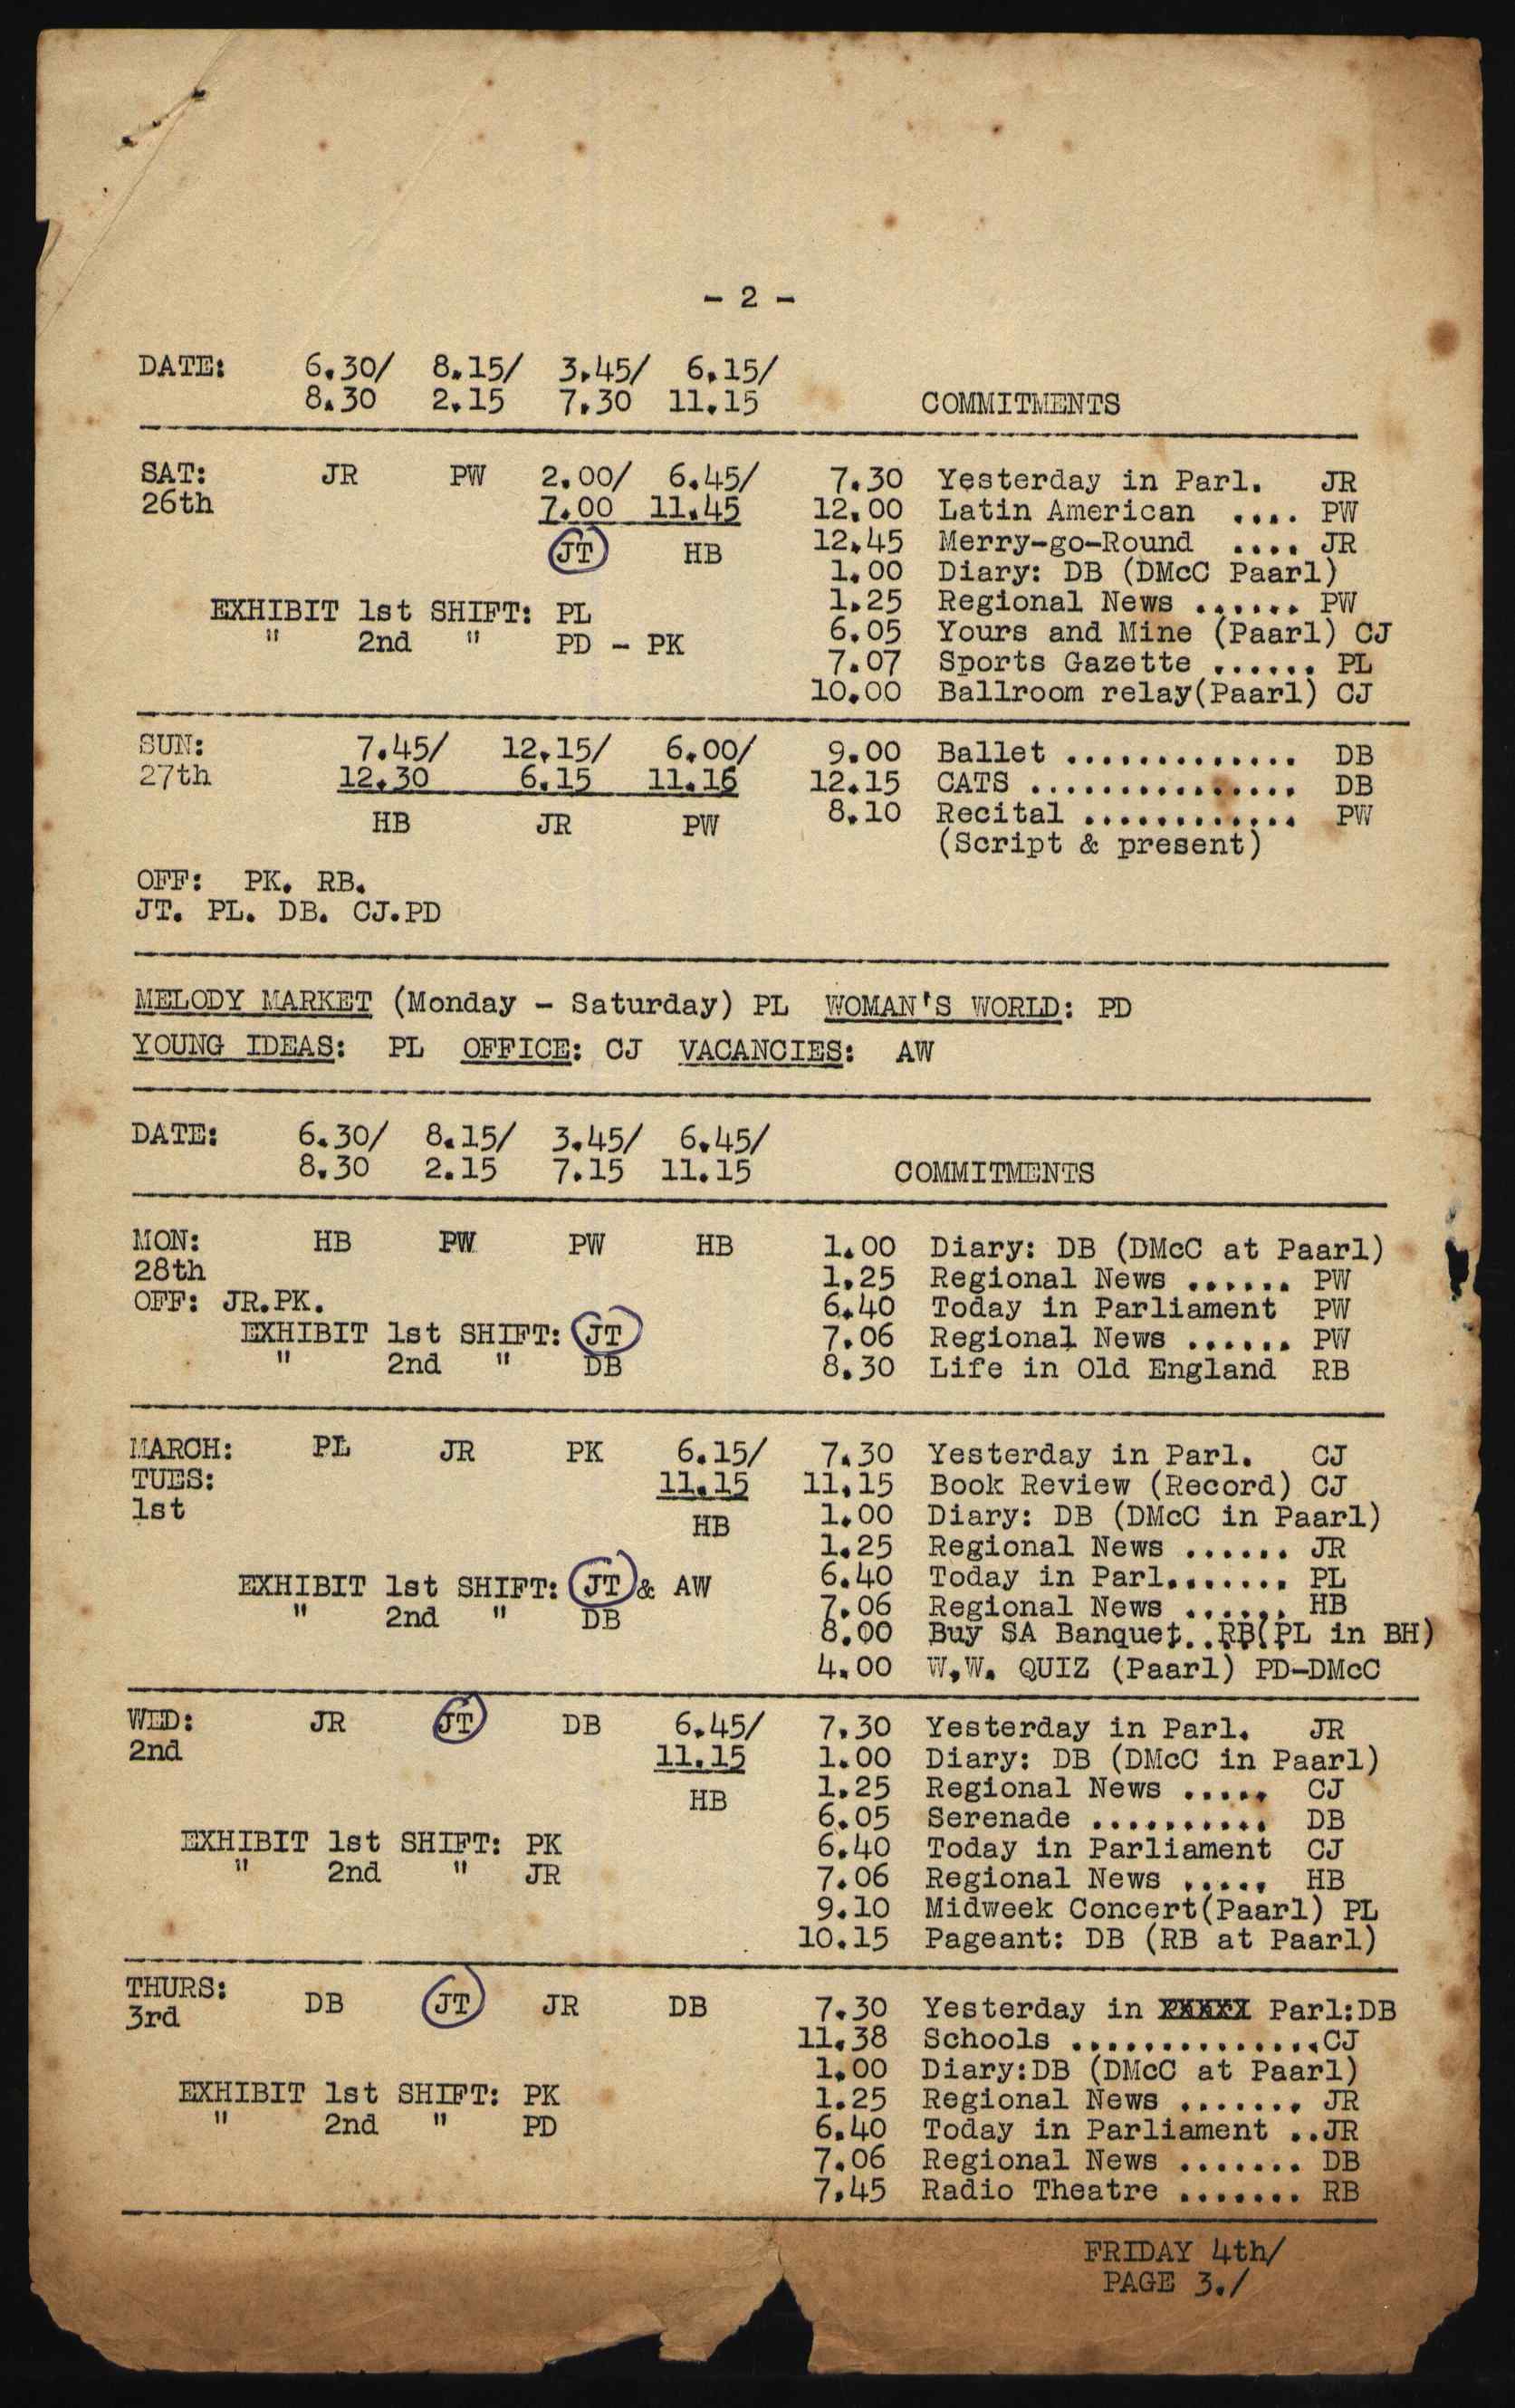 - 2 -
DATE: 6.30/ 8.15/ 3.45/ 6.15/
8.30 2.15 7.30 11.15 COMMITMENTS
SAT: JR PW 2.00/ 6.45/ 7.30 Yesterday in Parl. JR
26th 7.00 11.45 12.00 Latin American .... PW
JT HB 12.45 Merry-go-Round .... JR
1.00 Diary: DB (DMcC Paarl)
EXHIBIT 1st SHIFT: PL 1.25 Regional News ...... PW
" 2nd " PD - PK 6.05 Yours and Mine (Paarl) CJ
7.07 Sports Gazette ...... PL
10.00 Ballroom relay(Paarl) CJ
SUN: 7.45/ 12.15/ 6.00/ 9.00 Ballet ............. DB
27th 12.30 6.15 11.15 12.15 CATS ............... DB
HB JR PW 8.10 Recital ............ PW
(Script & present)
OFF: PK. RB.
JT. PL. DB. CJ.PD
MELODY MARKET (Monday - Saturday) PL WOMAN'S WORLD: PD
YOUNG IDEAS: PL OFFICE: CJ VACANCIES: AW
DATE: 6.30/ 8.15/ 3.45/ 6.45/
8.30 2.15 7.15 11.15 COMMITMENTS
MON: HB PW PW HB 1.00 Diary: DB (DMcC at Paarl)
28th 1.25 Regional News ...... PW
OFF: JR.PK. 6.40 Today in Parliament PW
EXHIBIT 1st SHIFT: JT 7.06 Regional News ...... PW
" 2nd " DB 8.30 Life in Old England RB
MARCH: PL JR PK 6.15/ 7.30 Yesterday in Parl. CJ
TUES: 11.15 11.15 Book Review (Record) CJ
1st HB 1.00 Diary: DB (DMcC in Paarl)
1.25 Regional News ...... JR
EXHIBIT 1st SHIFT: JT & AW 6.40 Today in Parl....... PL
" 2nd " DB 7.06 Regional News ...... HB
8.00 Buy SA Banquet..RB(PL in BH)
4.00 W.W. QUIZ (Paarl) PD-DMcC
WED: JR JT DB 6.45/ 7.30 Yesterday in Parl. JR
2nd 11.15 1.00 Diary: DB (DMcC in Paarl)
HB 1.25 Regional News ..... CJ
6.05 Serenade .......... DB
EXHIBIT 1st SHIFT: PK 6.40 Today in Parliament CJ
" 2nd " JR 7.06 Regional News ..... HB
9.10 Midweek Concert(Paarl) PL
10.15 Pageant: DB (RB at Paarl)
THURS: DB JT JR DB 7.30 Yesterday in Parl:DB
3rd 11.38 Schools ..............CJ
1.00 Diary:DB (DMcC at Paarl)
EXHIBIT 1st SHIFT: PK 1.25 Regional News ....... JR
" 2nd " PD 6.40 Today in Parliament ..JR
7.06 Regional News ....... DB
7.45 Radio Theatre ....... RB
FRIDAY 4th/
PAGE 3./